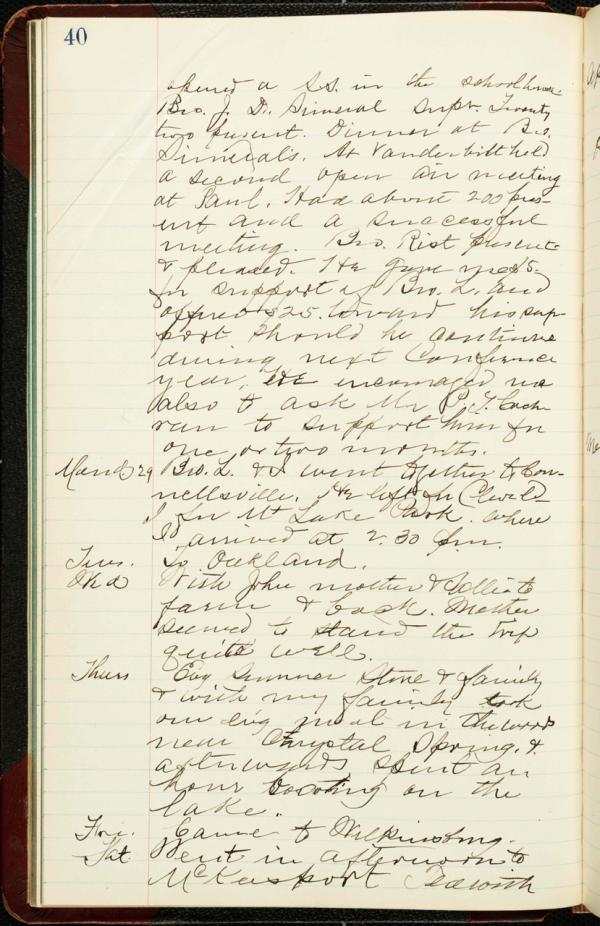 40
opened a S.S. in the schoolhouse
Bro. J. D. Simeral Supt. Twenty
two present. Dinner at Bro.
Simerals. At Vanderbilt held
a second open air meeting
at Paul. Had about 200 pres-
ent and a successful
meeting. Bro. Rist present
& pleased. He gave me $5-
for support of Bro. L. and
offered $25. toward his sup-
port should he continue
during next Conference
year. He encouraged me
also to ask Mr P. J. Coch-
ran to support him for
one or two months.
March 29 Bro. L. & I went together to Con-
nellsville. He left for
I for Mt Lake Park. where
I arrived at 2.30 p.m.
Tues. To Oakland.
Wed With John mother & Sallie to
farm & back. Mother
seemed to stand the trip
quite well.
Thurs Eve Sumner Stone & family
& with my family took
our evg meal in the woods
near Chrystal Spring. &
afterwards spent an
hour boating on the
lake.
Fri. Came to Wilkinsburg.
Sat Went in afternoon to
McKeesport Tea with